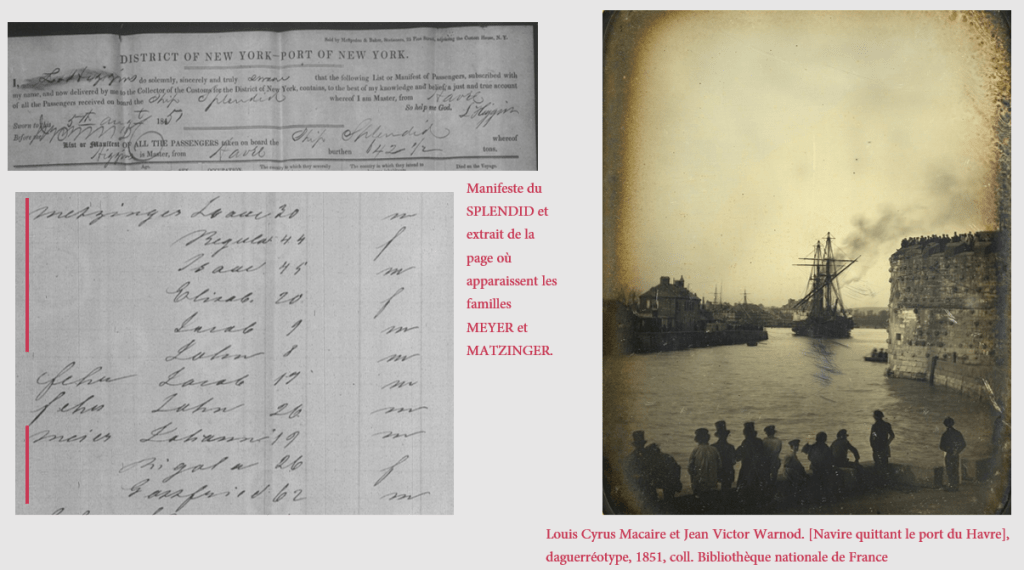 Sold by McSpedon & Baker, Stationers, 25 Pine Street, adjoining the Custom House, N. Y.
DISTRICT OF NEW YORK—PORT OF NEW YORK.
I, L. Higgins do solemnly, sincerely and truly swear that the following List or Manifest of Passengers, subscribed with
my name, and now delivered by me to the Collector of the Customs for the District of New York, contains, to the best of my knowledge and belief, a just and true account
of all the Passengers received on board the Ship Splendid whereof I am Master, from Havre
So help me God.
Sworn to this 5th August 1851 L Higgins
Before me
List or Manifest OF ALL THE PASSENGERS taken on board the Ship Splendid whereof
Higgins is Master, from Havre burthen 642 1/2 tons.
Died on the Voyage.
Manifeste du
SPLENDID et
extrait de la
page où
apparaissent les
familles
MEYER et
MATZINGER.
Metzinger Isaac 20 m
Regula 44 f
Isaac 45 m
Elisab. 20 f
Jacob 9 m
John 8 m
fehr Jacob 17 m
fehr John 26 m
Meier Johann 19 m
Rigola 26 f
Gottfried 62 m
Louis Cyrus Macaire et Jean Victor Warnod. [Navire quittant le port du Havre],
daguerréotype, 1851, coll. Bibliothèque nationale de France